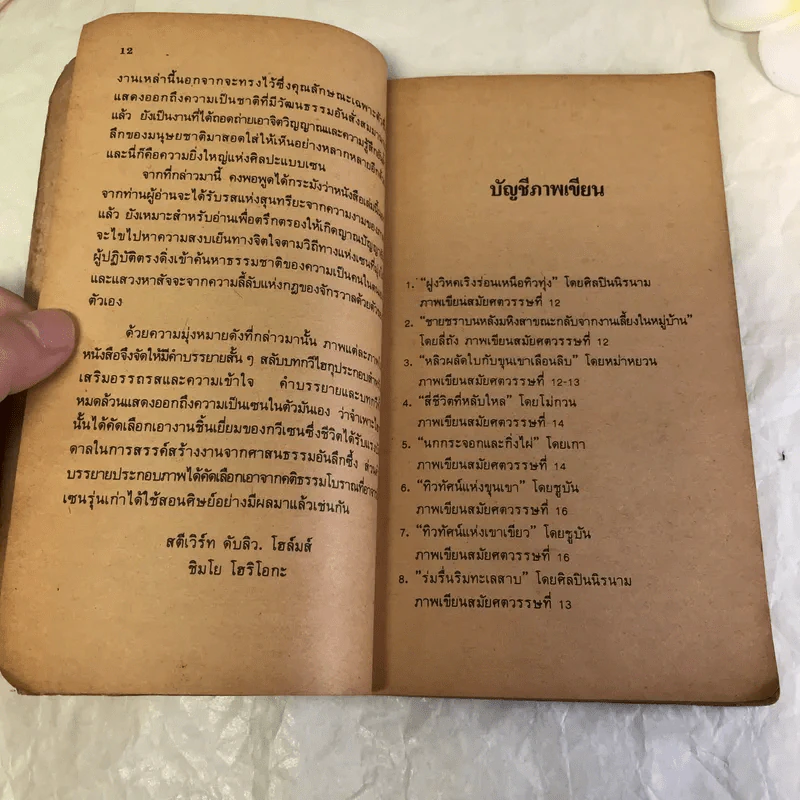 12
งานเหล่านี้นอกจากจะทรงไว้ซึ่งคุณลักษณะเฉพาะ
แสดงออกถึงความเป็นชาติที่มีวัฒนธรรมอันสั่งสมมา
แล้ว ยังเป็นงานที่ได้ถอดถ่ายเอาจิตวิญญาณและความรู้สึก
ลึกของมนุษยชาติมาสอดใส่ให้เห็นอย่างหลากหลายอีก
และนี่ก็คือความยิ่งใหญ่แห่งศิลปะแบบเซน
จากที่กล่าวมานี้ คงพอพูดได้กระมังว่าหนังสือเล่มนี้
จากท่านผู้อ่านจะได้รับรสแห่งสุนทรียะจากความงามของ
แล้ว ยังเหมาะสำหรับอ่านเพื่อตรึกตรองให้เกิดญาณปัญญา
จะไขไปหาความสงบเย็นทางจิตใจตามวิถีทางแห่งเซน
ผู้ปฏิบัติตรงดิ่งเข้าค้นหาธรรมชาติของความเป็นคนใน
และแสวงหาสัจจะจากความลี้ลับแห่งกฎของจักรวาลด้วย
ตัวเอง
ด้วยความมุ่งหมายดังที่กล่าวมานั้น ภาพแต่ละภาพ
หนังสือจึงจัดให้มีคำบรรยายสั้น ๆ สลับบทกวีไฮกุประกอบ
เสริมอรรถรสและความเข้าใจ คำบรรยายและบทกวี
หมดล้วนแสดงออกถึงความเป็นเซนในตัวมันเอง ว่าจำเพาะ
นั้นได้คัดเลือกเอางานชิ้นเยี่ยมของกวีเซนซึ่งชีวิตได้รับแรง
ดาลในการสรรค์สร้างงานจากศาสนธรรมอันลึกซึ้ง ส่วน
บรรยายประกอบภาพได้คัดเลือกเอาจากคติธรรมโบราณที่
เซนรุ่นเก่าได้ใช้สอนศิษย์อย่างมีผลมาแล้วเช่นกัน
สตีเวิร์ท ดับลิว. โฮล์มส์
ชิมโย โฮริโอกะ
บัญชีภาพเขียน
1. "ฝูงวิหคเริงร่อนเหนือทิวทุ่ง" โดยศิลปินนิรนาม
ภาพเขียนสมัยศตวรรษที่ 12
2. "ชายชราบนหลังมหิงสาขณะกลับจากงานเลี้ยงในหมู่บ้าน"
โดยลี่ถัง ภาพเขียนสมัยศตวรรษที่ 12
3. "หลิวผลัดใบกับขุนเขาเลือนลิบ" โดยหม่าหยวน
ภาพเขียนสมัยศตวรรษที่ 12-13
4. "สี่ชีวิตที่หลับใหล" โดยโม่กวน
ภาพเขียนสมัยศตวรรษที่ 14
5. "นกกระจอกและกิ่งไผ่" โดยเกา
ภาพเขียนสมัยศตวรรษที่ 14
6. "ทิวทัศน์แห่งขุนเขา" โดยชูบัน
ภาพเขียนสมัยศตวรรษที่ 16
7. "ทิวทัศน์แห่งเขาเขียว" โดยชูบัน
ภาพเขียนสมัยศตวรรษที่ 16
8. "ร่มรื่นริมทะเลสาบ" โดยศิลปินนิรนาม
ภาพเขียนสมัยศตวรรษที่ 13